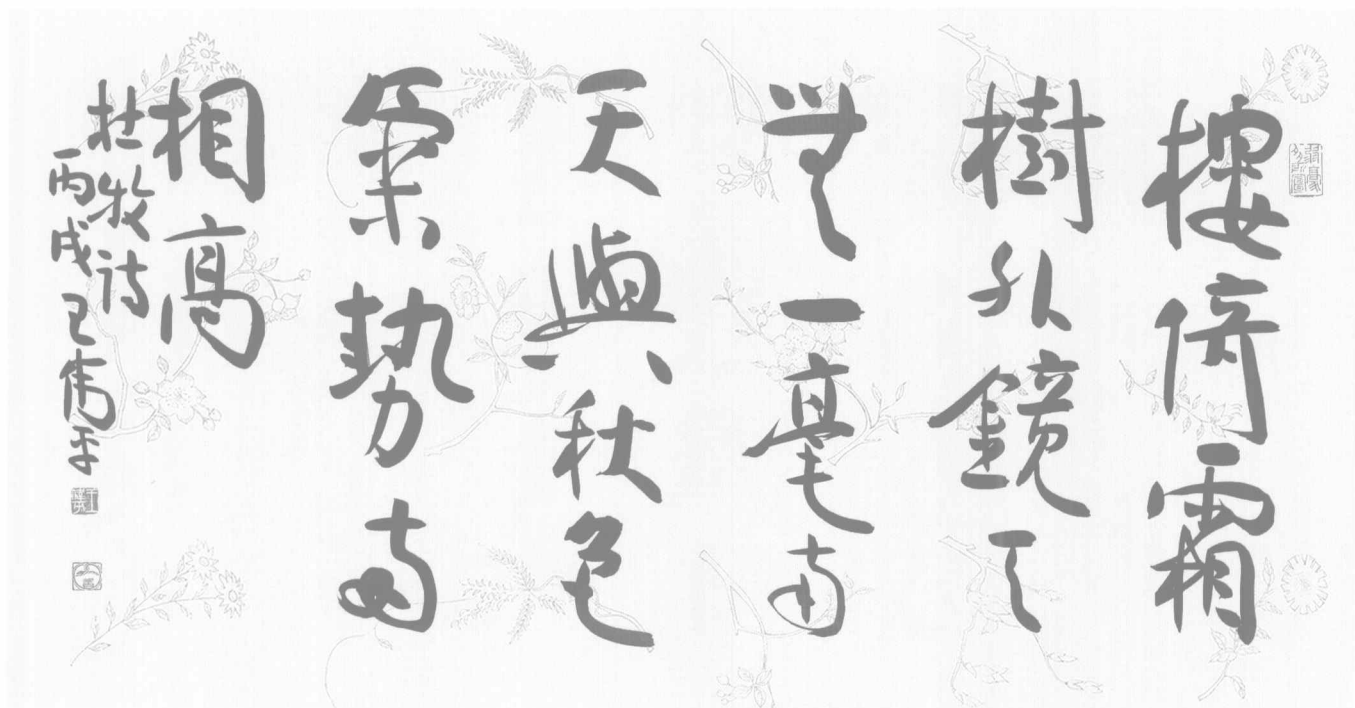 樓倚霜
樹外鏡天
無一毫南
天與秋色
氣勢兩
相高
杜牧诗
丙戌王偉平